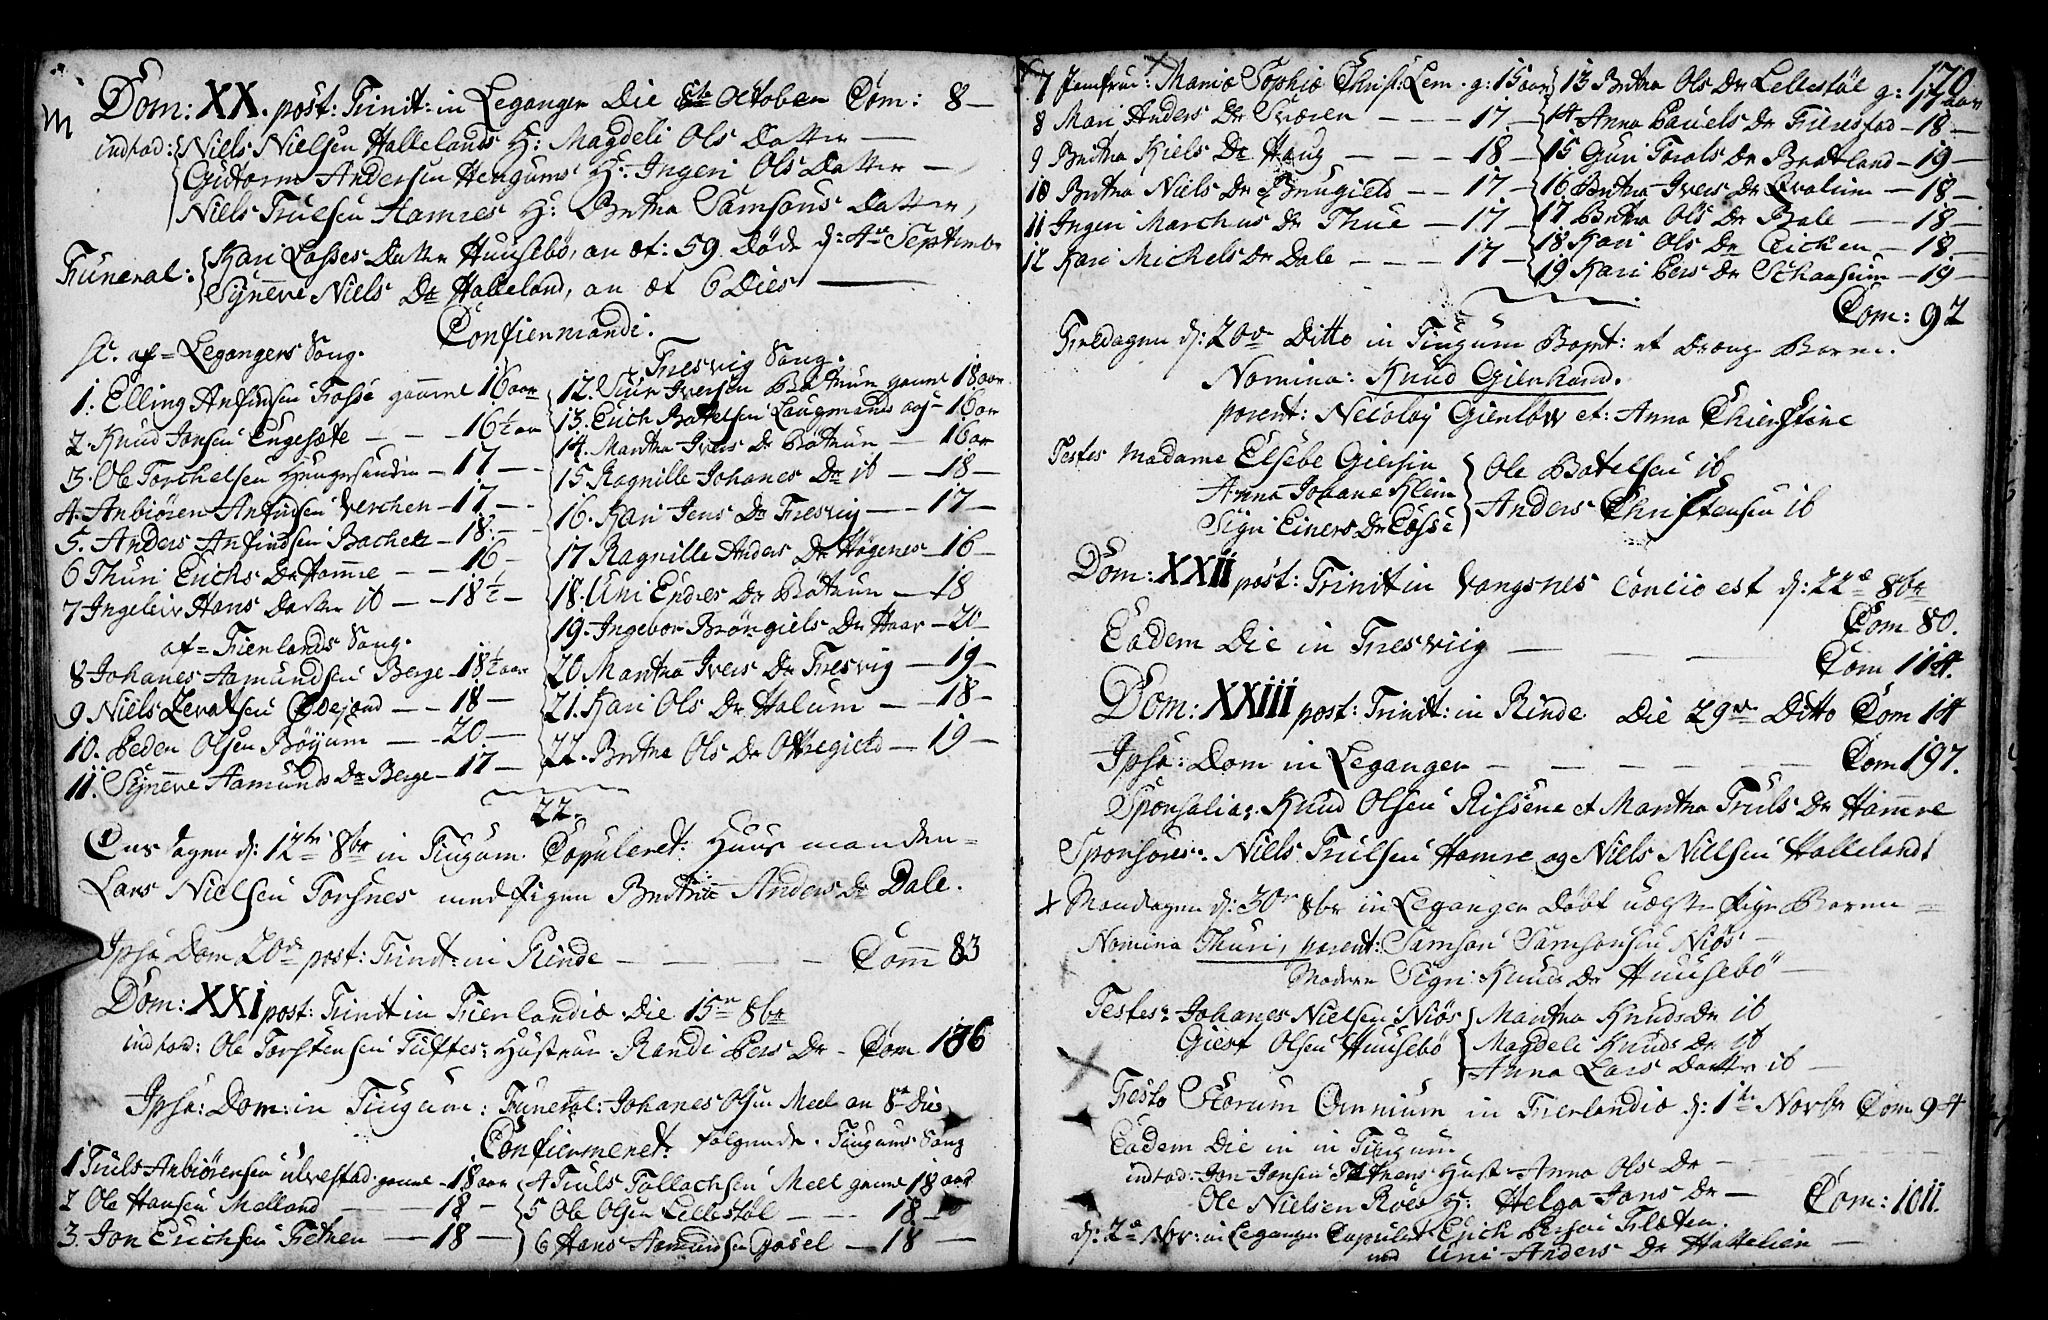 Dom: XX. post: Trinit: in Leganger Die 8de October Com: 8 —
indtad: Niels Nielsen Hallelands H: Magdeli Ols Datter —
Gutorm Andersen Hengums H: Ingeri Ols Datter —
Niels Trulsen Hamres H: Britha Samsons Datter,
Funeral: Kari Lasses Datter Huusebö, an æt: 59. Döde d: 4de Septembr
Synneve Niels Dr Halleland, an æt 6 Dies —
Confiermandi.
sc. af = Legangers Song.
1: Elling Anfindsen Fosse gammel 16 aar
2. Knud Jonsen Engesæte — — 16½ aar
3. Ole Torchelsen Hengersanden — 17 —
4. Anbiören Anfindsen Verchen — 17 —
5. Anders Anfindsen Bachen — 18 —
6 Thuri Erichs Dr Hamre — — 16 —
7 Ingeleiv Hans Datter ib — — 18½ —
af = Fierlands Song.
8 Johanes Aamundsen Berge — 18½ aar
9 Niels Levalsen — — 18 —
10. Peder Olsen Böyum — — 20 —
11. Synneve Aamunds Dr Berge — 17 —
Fresvig Song.
12. Siur Iversen Bøthun gamel 18 aar
13. Erich Bottelsen Laugmands — 16 ar
14. Martha Ivers Dr Bøthun — 16 ar
15 Ragnille Johanes Dr ib — 18 —
16. Kari Jens Dr Fresvig — — 17 —
17 Ragnille Anders Dr Högenes — 16 —
18. Uni Endres Dr Bøthun — 18
19. Ingebor Bröngiels Dr Haar — 20 —
20 Martha Ivers Dr Fresvig — 19 —
21. Kari Ols Dr Holum — — 18 —
22. Britha Ols Dr Ottregield — 19 —
22.
Onsdagen d: 12te 8br in Tiugum Copuleret: Huus manden =
Lars Nielsen Torsnes med Pigen Brithe Anders Dr Dale.
Ipso Dom 20de post: Trinit: in Rinde — — — — Com 83
Dom: XXI post: Trinit in Fierlandia Die 15de 8br
indtad: Ole Torstensen Tuftes: Hustrue Randi Pers Dr — Com 136
Ipso: Dom: in Tiugum: Funeral: Johanes Olsen Meel an 8 Dies
Confiermeret: folgende. Tiugums Song
1 Truls Anbiörensen Ulvestad gamel — 18 aar
2 Ole Hansen Melland — — — 18 —
3. Jon Erichsen Fethen — — 18 —
4 Truls Tollachsen Meel gamel 18 aar
5 Ole Olsen Lillestøl — — — 18 —
6 Hans Aamundsen Gosel — 18 —
170
7 Jomfrue: Maria Sophia Christ: Lem. g: 15 aar
8 Mari Anders Dr Sværen — — — 17 —
9 Britha Kiels Dr Haug — — — 18 —
10 Britha Niels Dr Brugield — — 17 —
11 Ingeri Marchus Dr Thue — — 17 —
12 Kari Michels Dr Dale — — — 17 —
13 Britha Ols Dr Lellestöl g: 17 aar
14 Anna Pauels Dr Fierestad — 18 —
15 Guri Torals Dr Bratland — 19 —
16 Britha Ivers Dr Qvalem — 18 —
17 Britha Ols Dr Bale — — 18 —
18 Kari Ols Dr Eichen — — 18 —
19 Kari Pers Dr Schaasum — 19 —
Com: 92
Fredagen d: 20de Ditto in Tiugum Bapt: et Drenge Barn.
Nomina: Knud Gierhard.
parent: Nicolay Gierlöw et: Anna Chirstine
Testes Madame Elsebe Giersin
Anna Johane Klein
Sigri Einers Dr Eosse
Ole Botelsen ib
Anders Christensen ib
Dom: XXII post: Trinit in Vangsnes Concio est d: 22de 8br
Com 80.
Eadem Die in Fresviig — — — Com 114.
Dom: XXIII post: Trinit: in Rinde Die 29de Ditto Com 14
Ipso: Dom in Leganger — — — — — Com 197.
Sponsalia: Knud Olsen Rissene et Martha Truls Dr Hamre
Sponsores: Niels Trulsen Hamre og Niels Nielsen Halleland!
Mandagen d: 30de 8br in Leganger döbt uægte Pige Barn =
Nomina Thuri, parent: Samson Samsonsen Niøs —
Moder Sigri Knuds Dr Huusebö —
Testes: Johanes Nielsen Niøs
Giest Olsen Huusebö
Martha Knuds Dr ib
Magdeli Knuds Dr ib
Anna Lars Datter ib —
Festo Storum Omnium in Fierlandia d: 1te Novbr Com 94
Eadem Die in in Tiugum — — —
indtad: Jon Jonsen Fethens Hust Anna Ols Dr —
Ole Nielsen Roes H: Helga Jons Dr — Com: 1011.
d: 2de Nbr: in Leganger Copulert Erich Persen Flaten.
med Uni Anders Dr Hattelien —